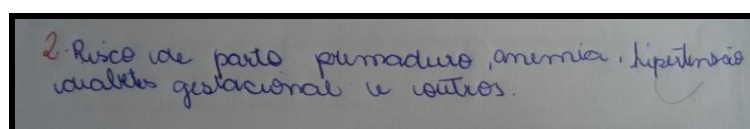 2. Risco de parto prematuro, anemia, hipertensão
diabetes gestacional e outros.